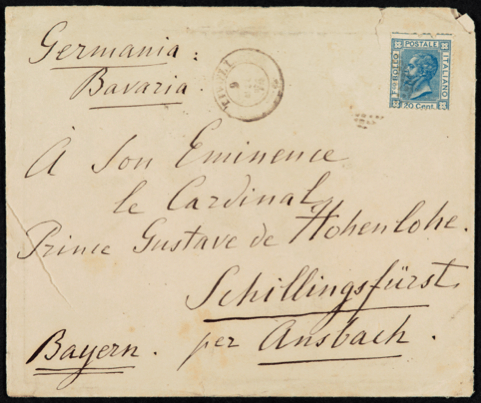 Germania:
Bavaria.
TIVOLI
POSTALE
ITALIANO
20 Cent.
À Son Eminence
le Cardinal
Prince Gustave de Hohenlohe.
Schillingsfürst
per Ansbach.
Bayern.